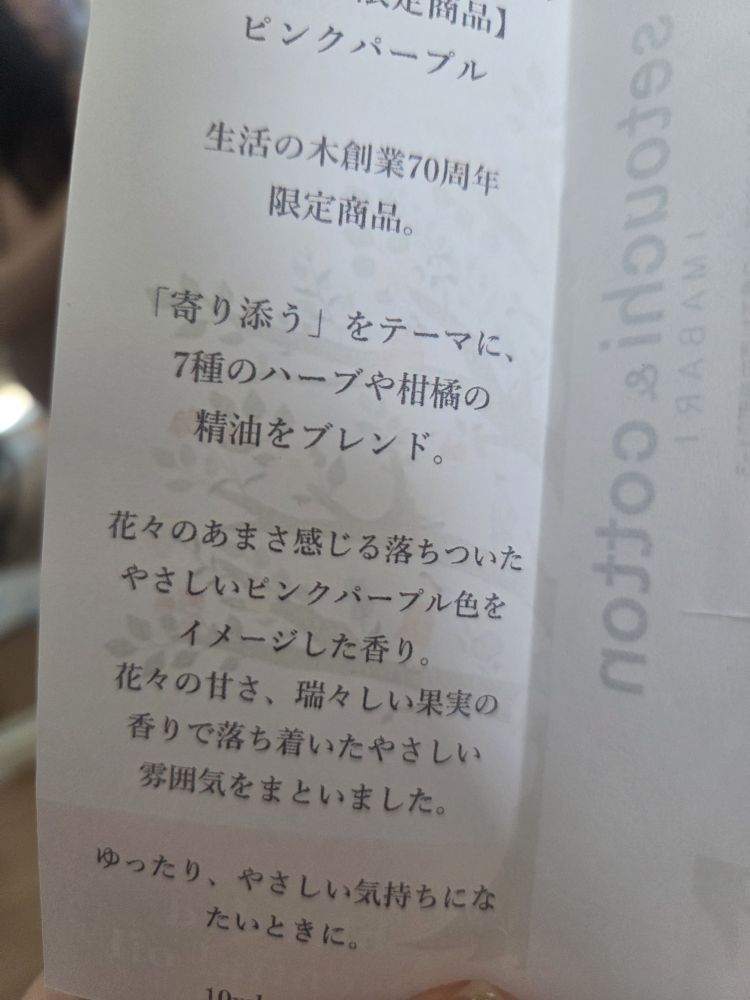 限定商品】
ピンクパープル
生活の木創業70周年
限定商品。
「寄り添う」をテーマに、
7種のハーブや柑橘の
精油をブレンド。
花々のあまさ感じる落ちついた
やさしいピンクパープル色を
イメージした香り。
花々の甘さ、瑞々しい果実の
香りで落ち着いたやさしい
雰囲気をまといました。
ゆったり、やさしい気持ちにな
たいときに。
10ml
setouchi & cotton
IMABARI